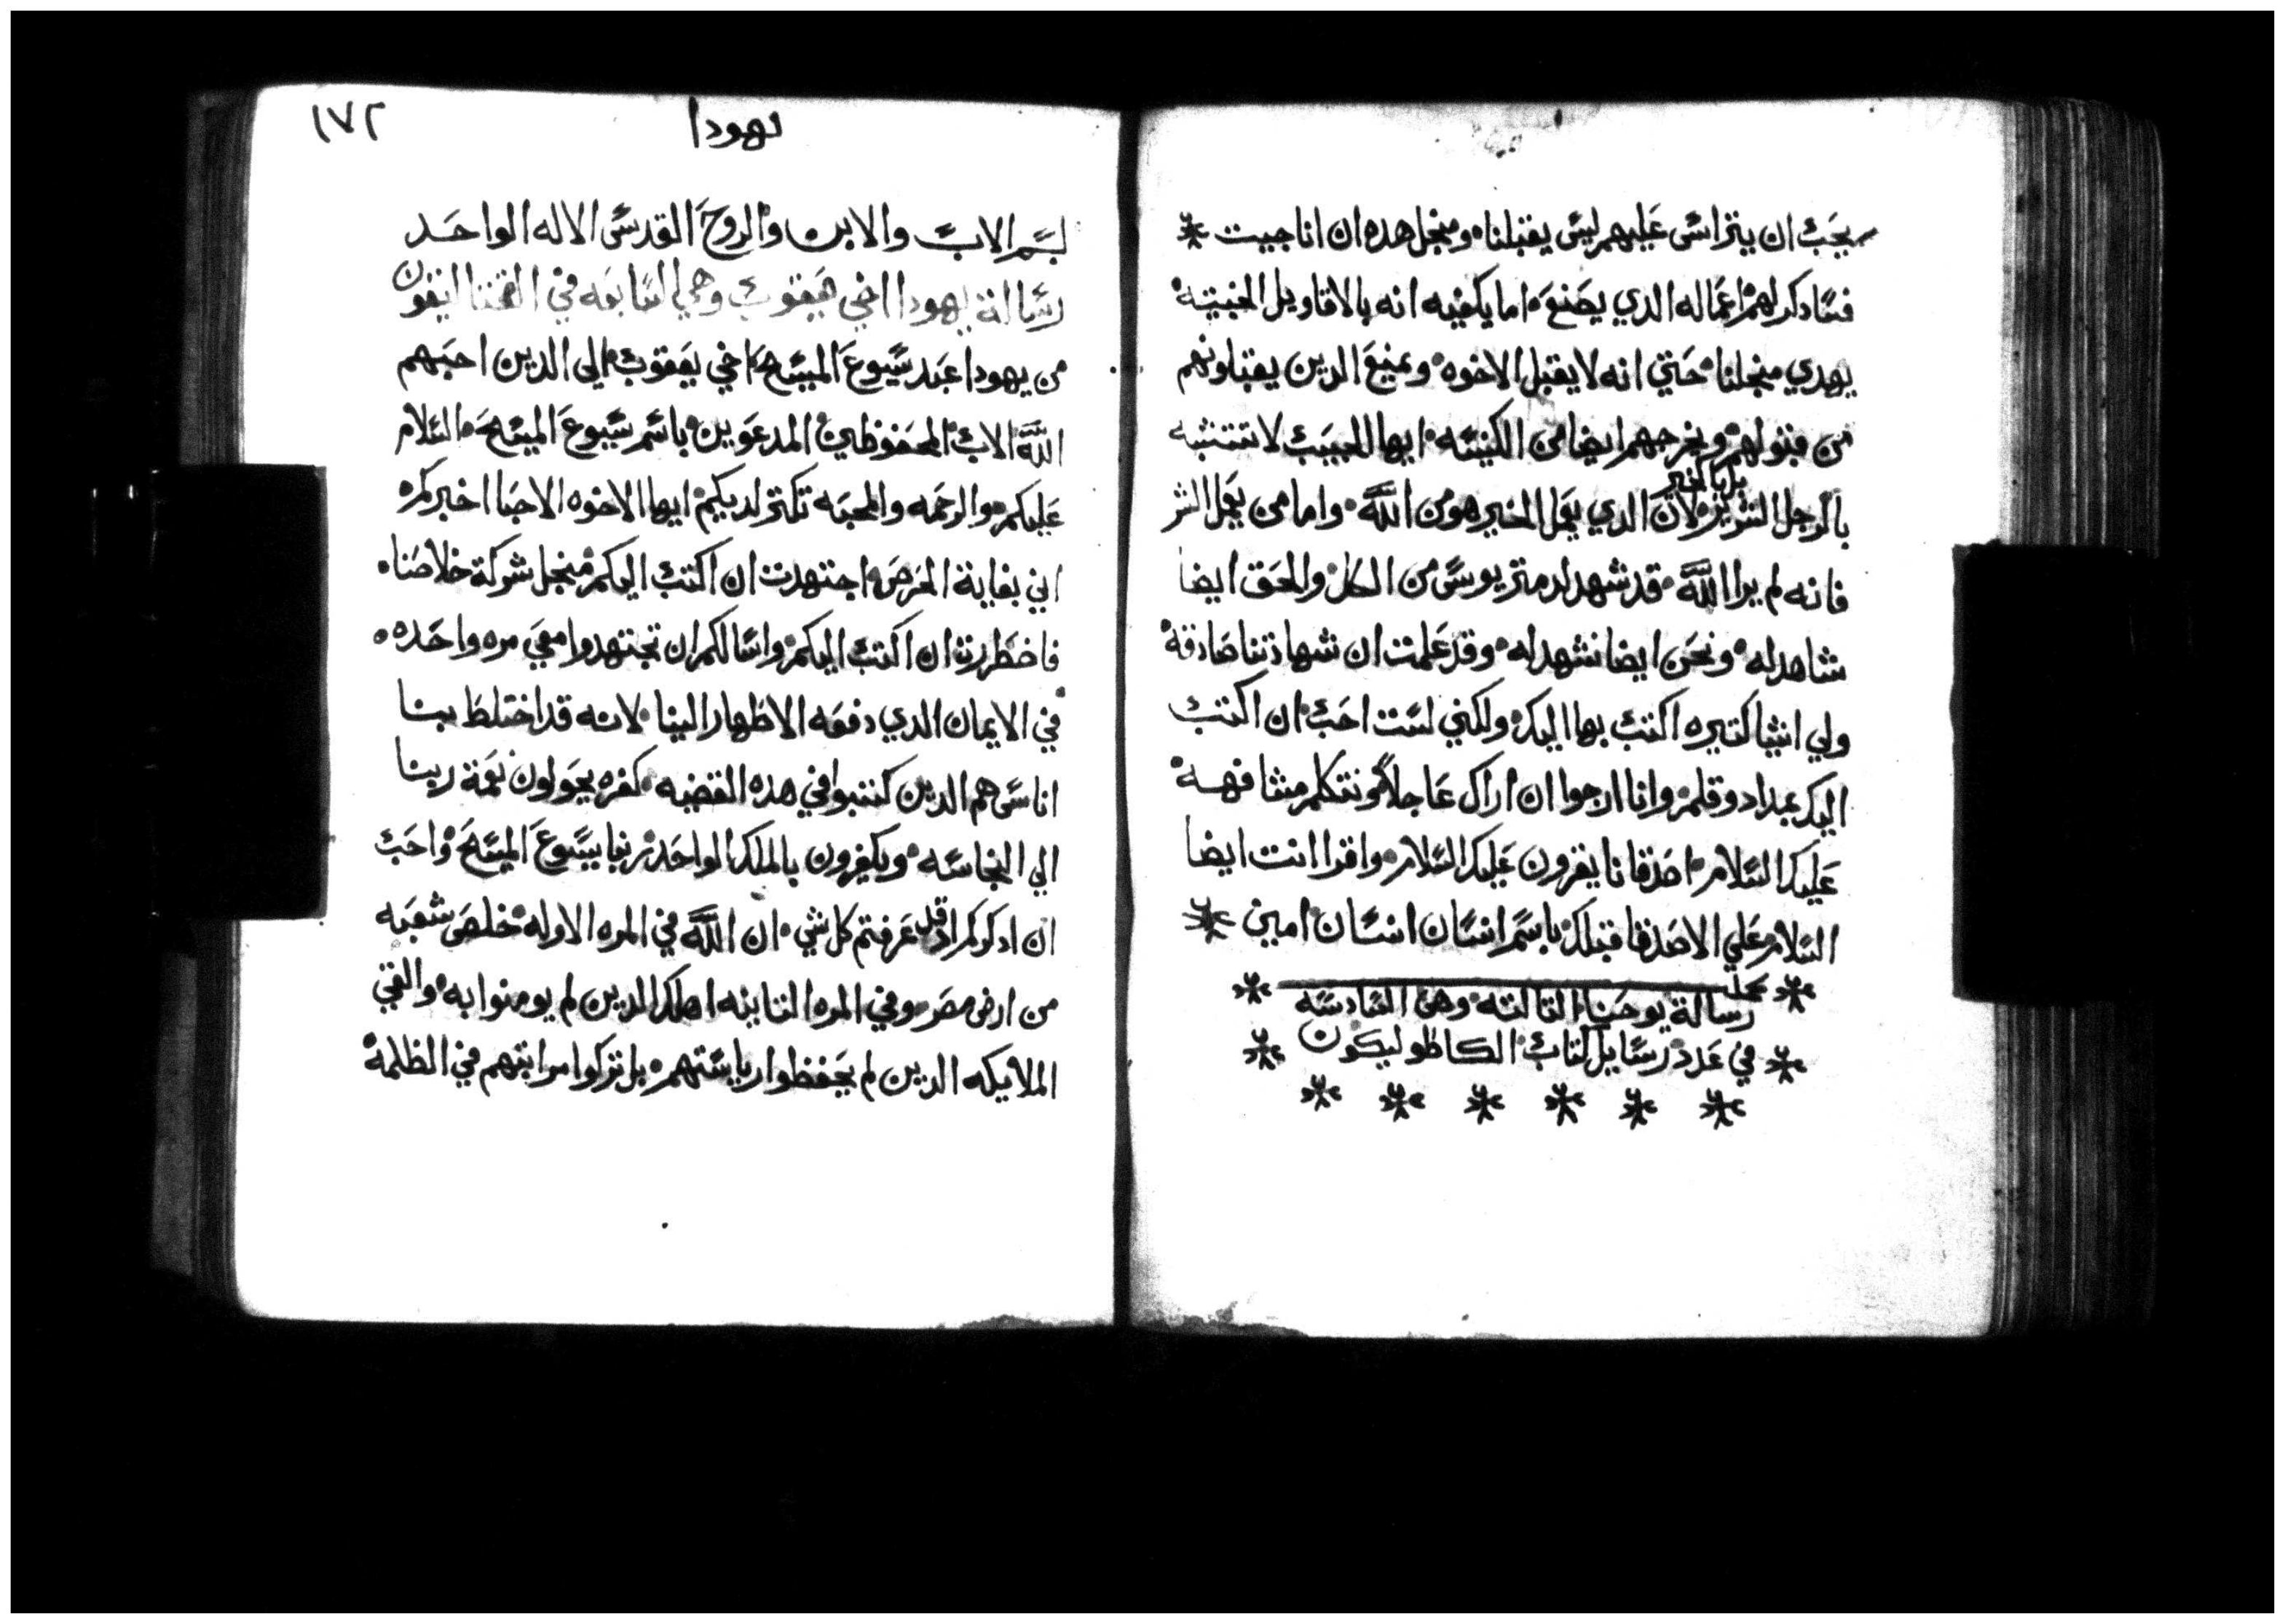 يجب ان يتراس عليهم ليس يقبلنا ومنجل هده ان انا جيت
فسادكر لهم اعماله الدي يصنع اما يكفيه انه بالاقاويل الخبيته
يهدي منجلنا حتي انه لا يقبل الاخوه ويمنع الدين يقبلونهم
من قبولهم ويخرجهم ايضا من الكنيسه ايها الحبيب لا تتشبه
بل بالخير
بالرجل الشرير لان الدي يعمل الخير هو من الله واما من يعمل الشر
فانه لم يرا الله قد شهد لدمتريوس من الكل والحق ايضا
شاهد له ونحن ايضا نشهد له وقد علمت ان شهادتنا صادقه
ولي اشيا كتيره اكتب بها اليك ولكني لست احب ان اكتب
اليك بمداد وقلم وانا ارجوا ان اراك عاجلا ونتكلم مشافهه
عليك السلام اصدقانا يقرون عليك السلام واقرا انت ايضا
السلام علي الاصدقا قبلك باسم انسان انسان امين
كملت
رسالة يوحنا التالته وهي السادسه
في عدد رسايل كتاب الكاطوليكون
١٧٢
يهودا
بسم الاب والابن والروح القدس الاله الواحد
رسالة يهودا اخي يعقوب وهي السابعه في القتاليقون
من يهودا عبد يسوع المسيح اخي يعقوب الي الدين احبهم
الله الاب المحفوظين المدعوين باسم يسوع المسيح السلام
عليكم والرحمه والمحبه تكتر لديكم ايها الاخوه الاحبا اخبركم
اني بغاية الحرص اجتهدت ان اكتب اليكم منجل شركة خلاصنا
فاضطررت ان اكتب اليكم واسالكم ان تجتهدوا معي مره واحده
في الايمان الدي دفعه الاطهار الينا لانه قد اختلط بنا
اناس هم الدين كتبوا في هده القضيه كفره يحولون نعمة ربنا
الي النجاسه ويكفرون بالملك الواحد ربنا يسوع المسيح واحب
ان ادكركم اد قد عرفتم كل شي ان الله في المره الاوله خلص شعبه
من ارض مصر وفي المره التانيه اهلك الدين لم يومنوا به والقي
الملايكه الدين لم يحفظوا رياستهم بل تركوا مراتبهم في الظلمه